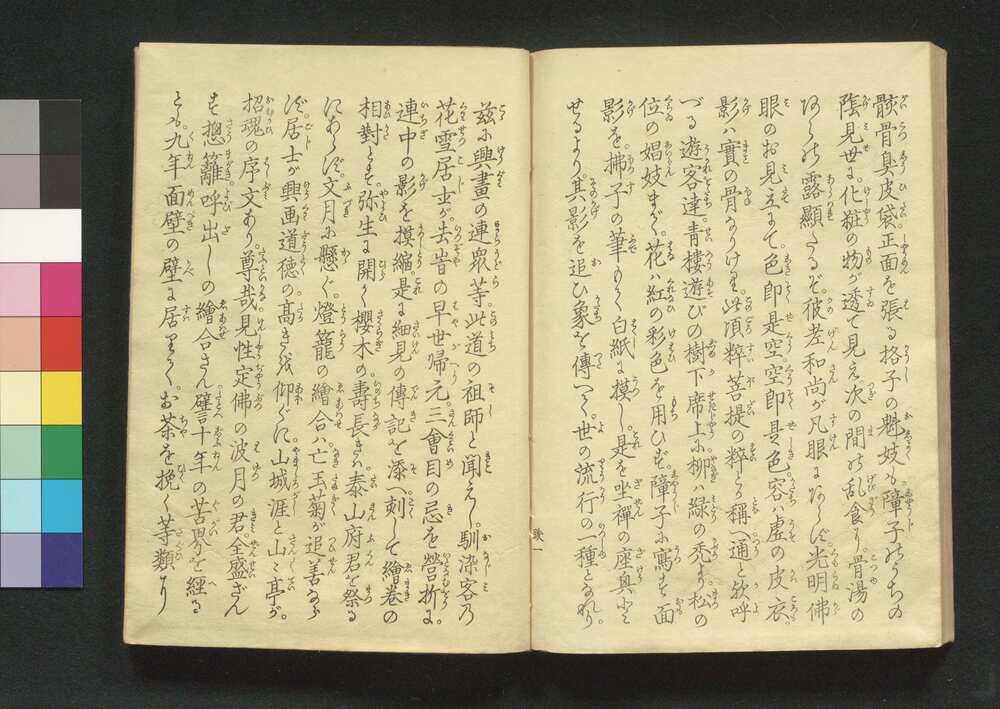 骸骨臭皮袋正面を張る格子の魁妓も障子のうちの
陰見世に化粧の物が透て見え次の間の乱食り骨湯の
露顕たるぞ彼差和尚が凡眼にあらず光明佛
眼のお見立にて色即是空空即是色容ハ虚の皮衣
影ハ實の骨なりけり此頃粹菩提の粹とか稱通と欤呼
づる遊客達青樓遊びの樹下席上に柳ハ緑の禿より松の
位の娼妓まで花ハ紅の彩色を用ひず障子に寫す面
影を拂子の筆もて白紙に摸し是を坐禅の座與と
せるより其影を追ひ象を傳へて世の流行の一種となれり
序一
茲に興畫の連衆等此道の祖師と聞えし馴染客乃
花雪居士が去ぬ昔の早世歸元三會目の忌を營折に
連中の影を摸縮是に細見の傳記を添へ刻して繪巻の
相對とす弥生に開く櫻木の壽長きハ泰山府君を祭る
にあらず文月に懸ぐ燈籠の繪合ハ亡玉菊が追善なら
ず居士が興画道徳の髙きを仰ぐに山城涯と山々亭が
招魂の序文あり尊哉見性定佛の波月の君全盛ざん
す揔籬呼出しの繪合さん譬言十年の苦界を經る
とも九年面壁の壁に居りてお茶を挽く等類なり